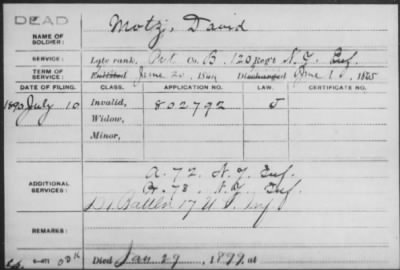 DEAD
NAME OF SOLDIER: Motz, David
SERVICE: Late rank, Pvt. Co. B, 120 Reg't N.Y. Inf.
TERM OF SERVICE: Enlisted June 20, Discharged June 1865
DATE OF FILING. CLASS. APPLICATION NO. LAW. CERTIFICATE NO.
1890 July 10 Invalid, 802792 J
Widow,
Minor,
ADDITIONAL SERVICES: A. 72 N.Y. Inf.
78 N.Y. Inf.
17 U.S. Inf
REMARKS:
Died Jan 29, 1899, at